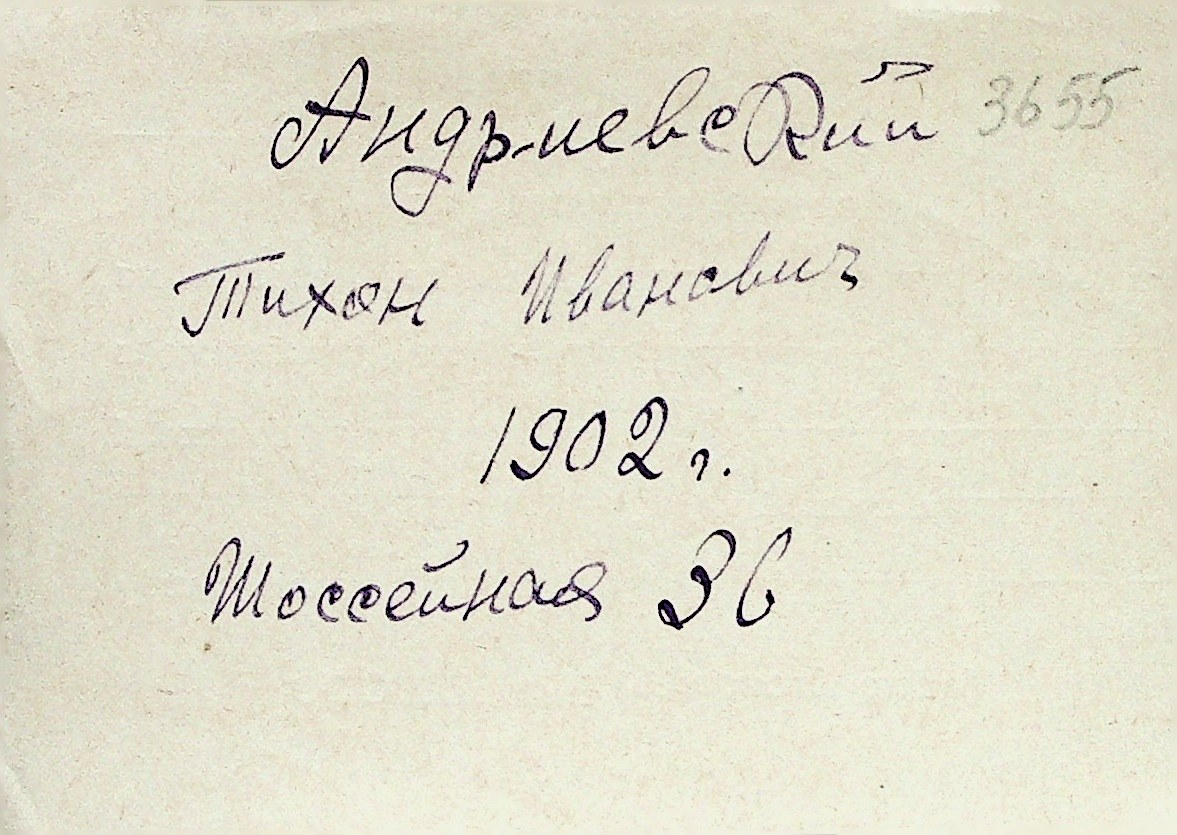 Андриевский 3655
Тихон Иванович
1902 г.
Шоссейная 36